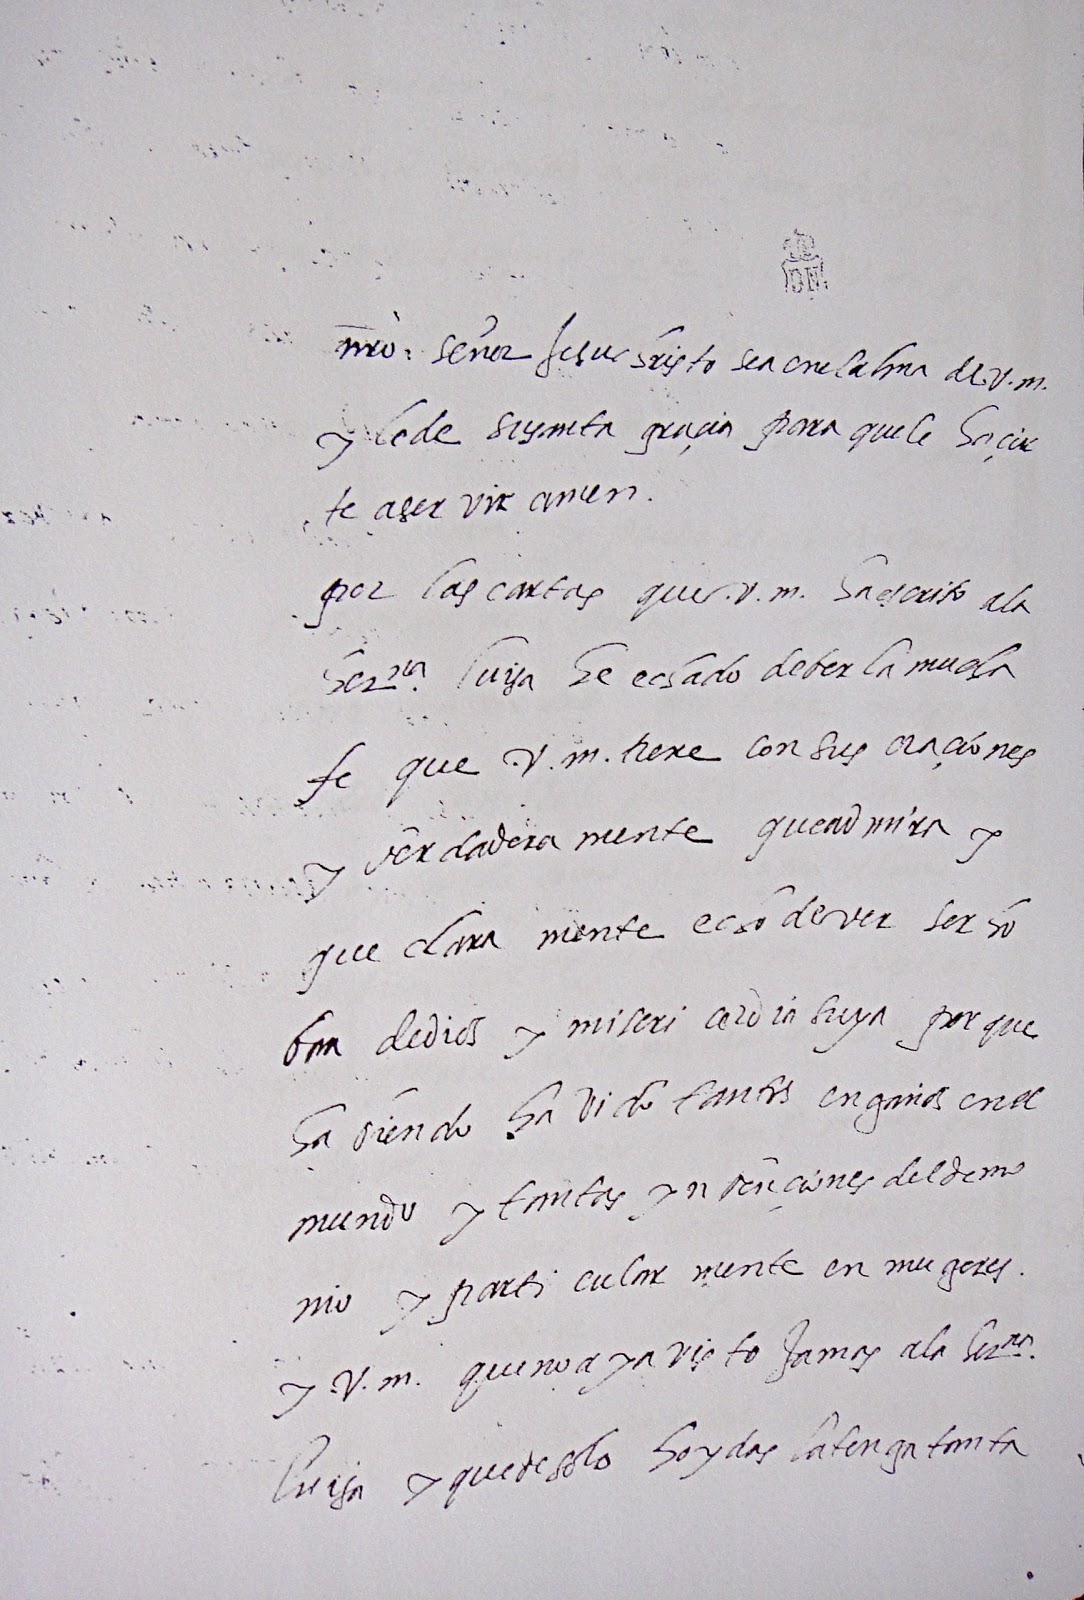 BN
nro. señor Jesus christo sea en el alma de v.m.
y le de su santa graçia para que le haçier
te a ser vir amen.
por las cartas que v.m. ha escrito a la
herna. luisa he echado de ber la mucha
fe que v.m. tiene con sus oraçiones
y verdadera mente que admira y
que clara mente echo de ver ser ho
bra de dios y miseri cordia suya por que
ha viendo ha vido tantos engaños en el
mundo y tantas yn vençiones del demo
nio y parti cular mente en mugeres.
y v.m. que no a ya visto Jamas a la herna.
luisa y que de solo hoydas la tenga tanta